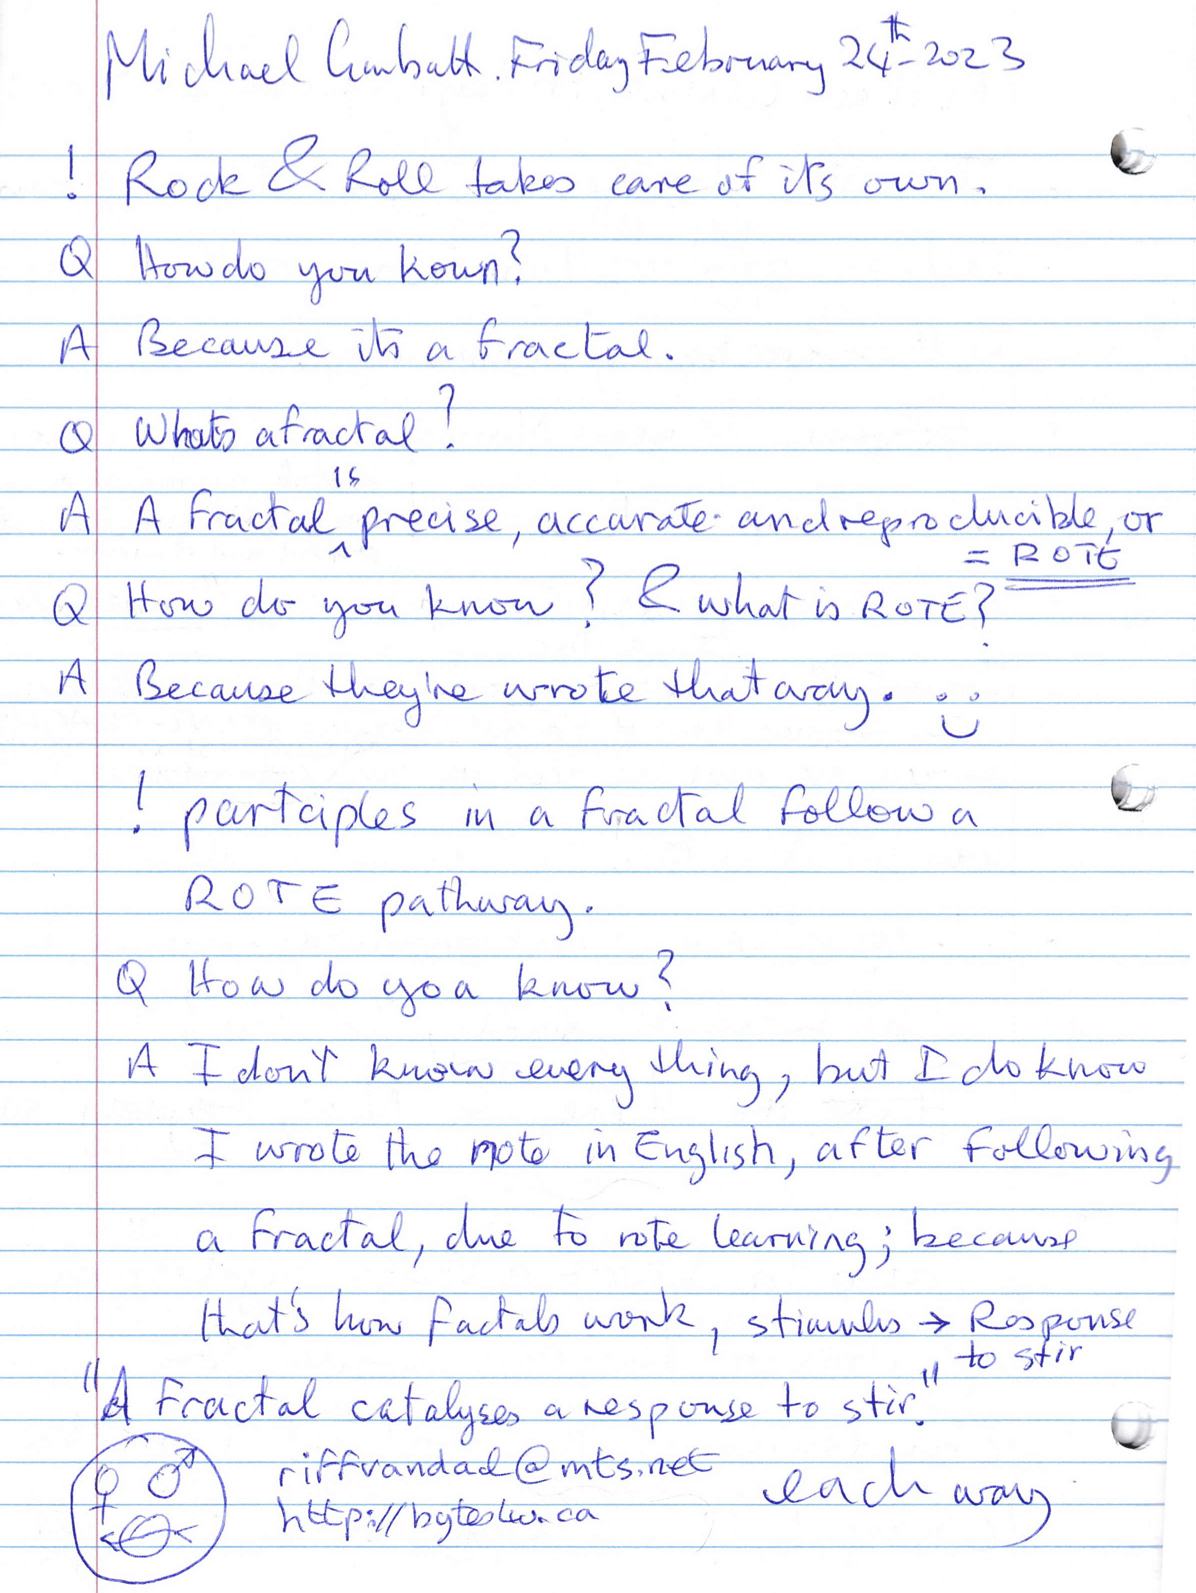 Michael Friday February 24th-2023
! Rock & Roll takes care of its own.
Q How do you kown?
A Because its a fractal.
Q Whats a fractal?
A A fractal is precise, accurate and reproducible, or
= ROTE
Q How do you know? & what is ROTE?
A Because they're wrote that way.
! partciples in a fractal follow a
ROTE pathway.
Q How do you know?
A I don't know every thing, but I do know
I wrote the note in English, after following
a fractal, due to rote learning; because
that's how factals work, stimulus → Response
to stir
"A fractal catalyses a response to stir."
riffvandad@mts.net
each way